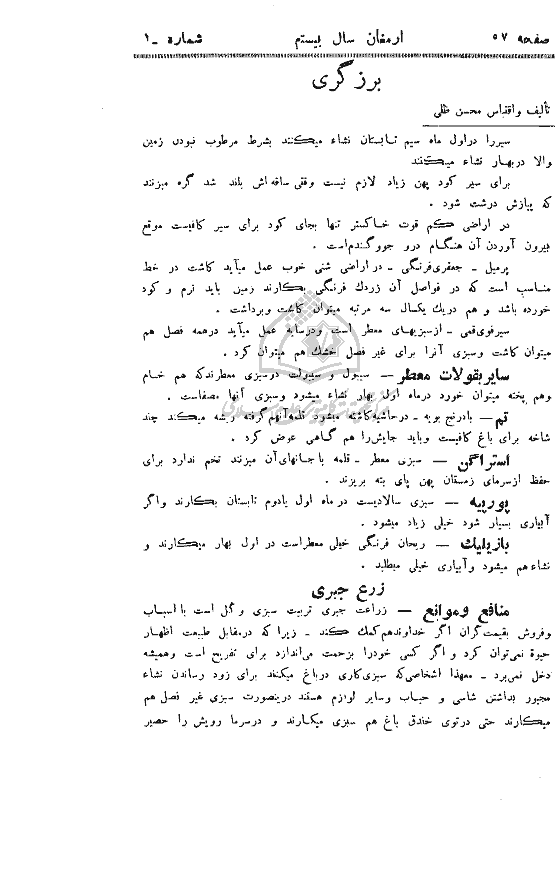 صفحه ۵۷ ارمغان سال بیستم شماره ـ۱
برزگری
تألیف واقتباس محسن ظلی
سیررا دراول ماه سیم تابستان نشاء میکنند بشرط مرطوب نبودن زمین
والا دربهار نشاء میکنند
برای سیر کود پهن زیاد لازم نیست وقتی ساقه‌اش بلند شد گره میزنند
که پیازش درشت شود .
در اراضی کم قوت خاکستر تنها بجای کود برای سیر کافیست موقع
بیرون آوردن آن هنگام درو جووگندم‌است .
پرمیل ـ جعفری‌فرنگی ـ دراراضی شنی خوب عمل میآید کاشت در خط
متناسب است که در فواصل آن زردك فرنگی بکارند زمین باید نرم و کود
خورده باشد و هم دریك یکسال سه مرتبه میتوان کاشت وبرداشت .
سیرفوی‌قمی ـ ازسبزیهای معطر است ودرسایه عمل میآید درهمه فصل هم
میتوان کاشت وسبزی آنرا برای غیر فصل خشك هم میتوان کرد .
سایربقولات معطر ـ سیبول و سیبولت دوسبزی معطرندکه هم خام
وهم پخته میتوان خورد درماه اول بهار نشاء میشود وسبزی آنها مصفاست .
تم ـ بادرنج بویه ـ درحاشیه‌کاشته میشود قلمه‌آنهم‌گرفته ریشه میکند چند
شاخه برای باغ کافیست وباید جایش‌را هم گاهی عوض کرد .
استراگن ـ سبزی معطر ـ قلمه باجانهای‌آن میزنند تخم ندارد برای
حفظ ازسرمای زمستان پهن پای بته بریزند .
پورپیه ـ سبزی سالادیست در ماه اول یادوم تابستان بکارند واگر
آبیاری بسیار شود خیلی زیاد میشود .
بازیلیك ـ ریحان فرنگی خیلی معطراست در اول بهار میکارند و
نشاءهم میشود وآبیاری خیلی میطلبد .
زرع جبری
منافع وموانع ـ زراعت جبری تربیت سبزی وگل است با اسباب
وفروش بقیمت‌گران اگر خداوندهم‌کمك کند ـ زیرا که درمقابل طبیعت اظهار
حیوة نمی‌توان کرد و اگر کسی خودرا بزحمت می‌اندازد برای تفریح است وهمیشه
دخل نمی‌برد ـ معهذا اشخاصی‌که سبزی‌کاری درباغ میکنند برای زود رساندن نشاء
مجبور بداشتن شاسی و حباب وسایر لوازم هستند درینصورت سبزی غیر فصل هم
میکارند حتی درتوی خندق باغ هم سبزی میکارند و درسرما رویش را حصیر